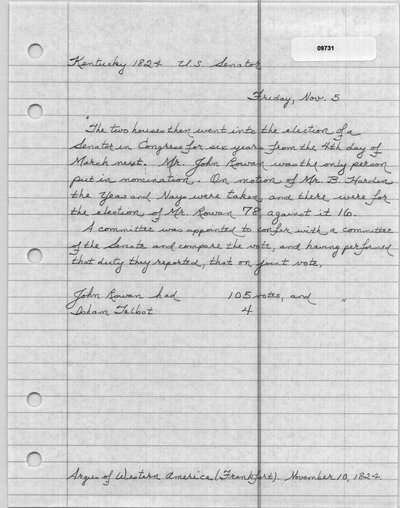 09731
Kentucky 1824 U.S. Senator
Friday, Nov. 5
"The two houses then went into the election of a
Senator in Congress for six years from the 4th day of
March next. Mr. John Rowan was the only person
put in nomination. On motion of Mr. B. Hardin
the Yeas and Nays were taken and there were for
the election of Mr Rowan 78, against it 16.
A committee was appointed to confer with a committee
of the Senate and compare the vote, and having performed
that duty they reported, that on joint vote,
John Rowan had 105 votes, and "
Isham Talbot 4
Argus of Western America (Frankfort). November 10, 1824.